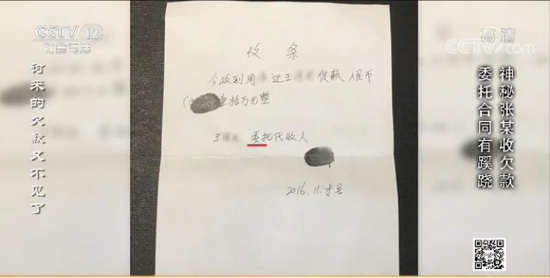 CCTV 12
社会与法
高清
CCTV.com
讨来的欠款又不见了
神秘张某收欠款
委托合同有蹊跷
收条
今收到周 还王 款 人民币
拾万元整
王 委托代收人
2016.11.